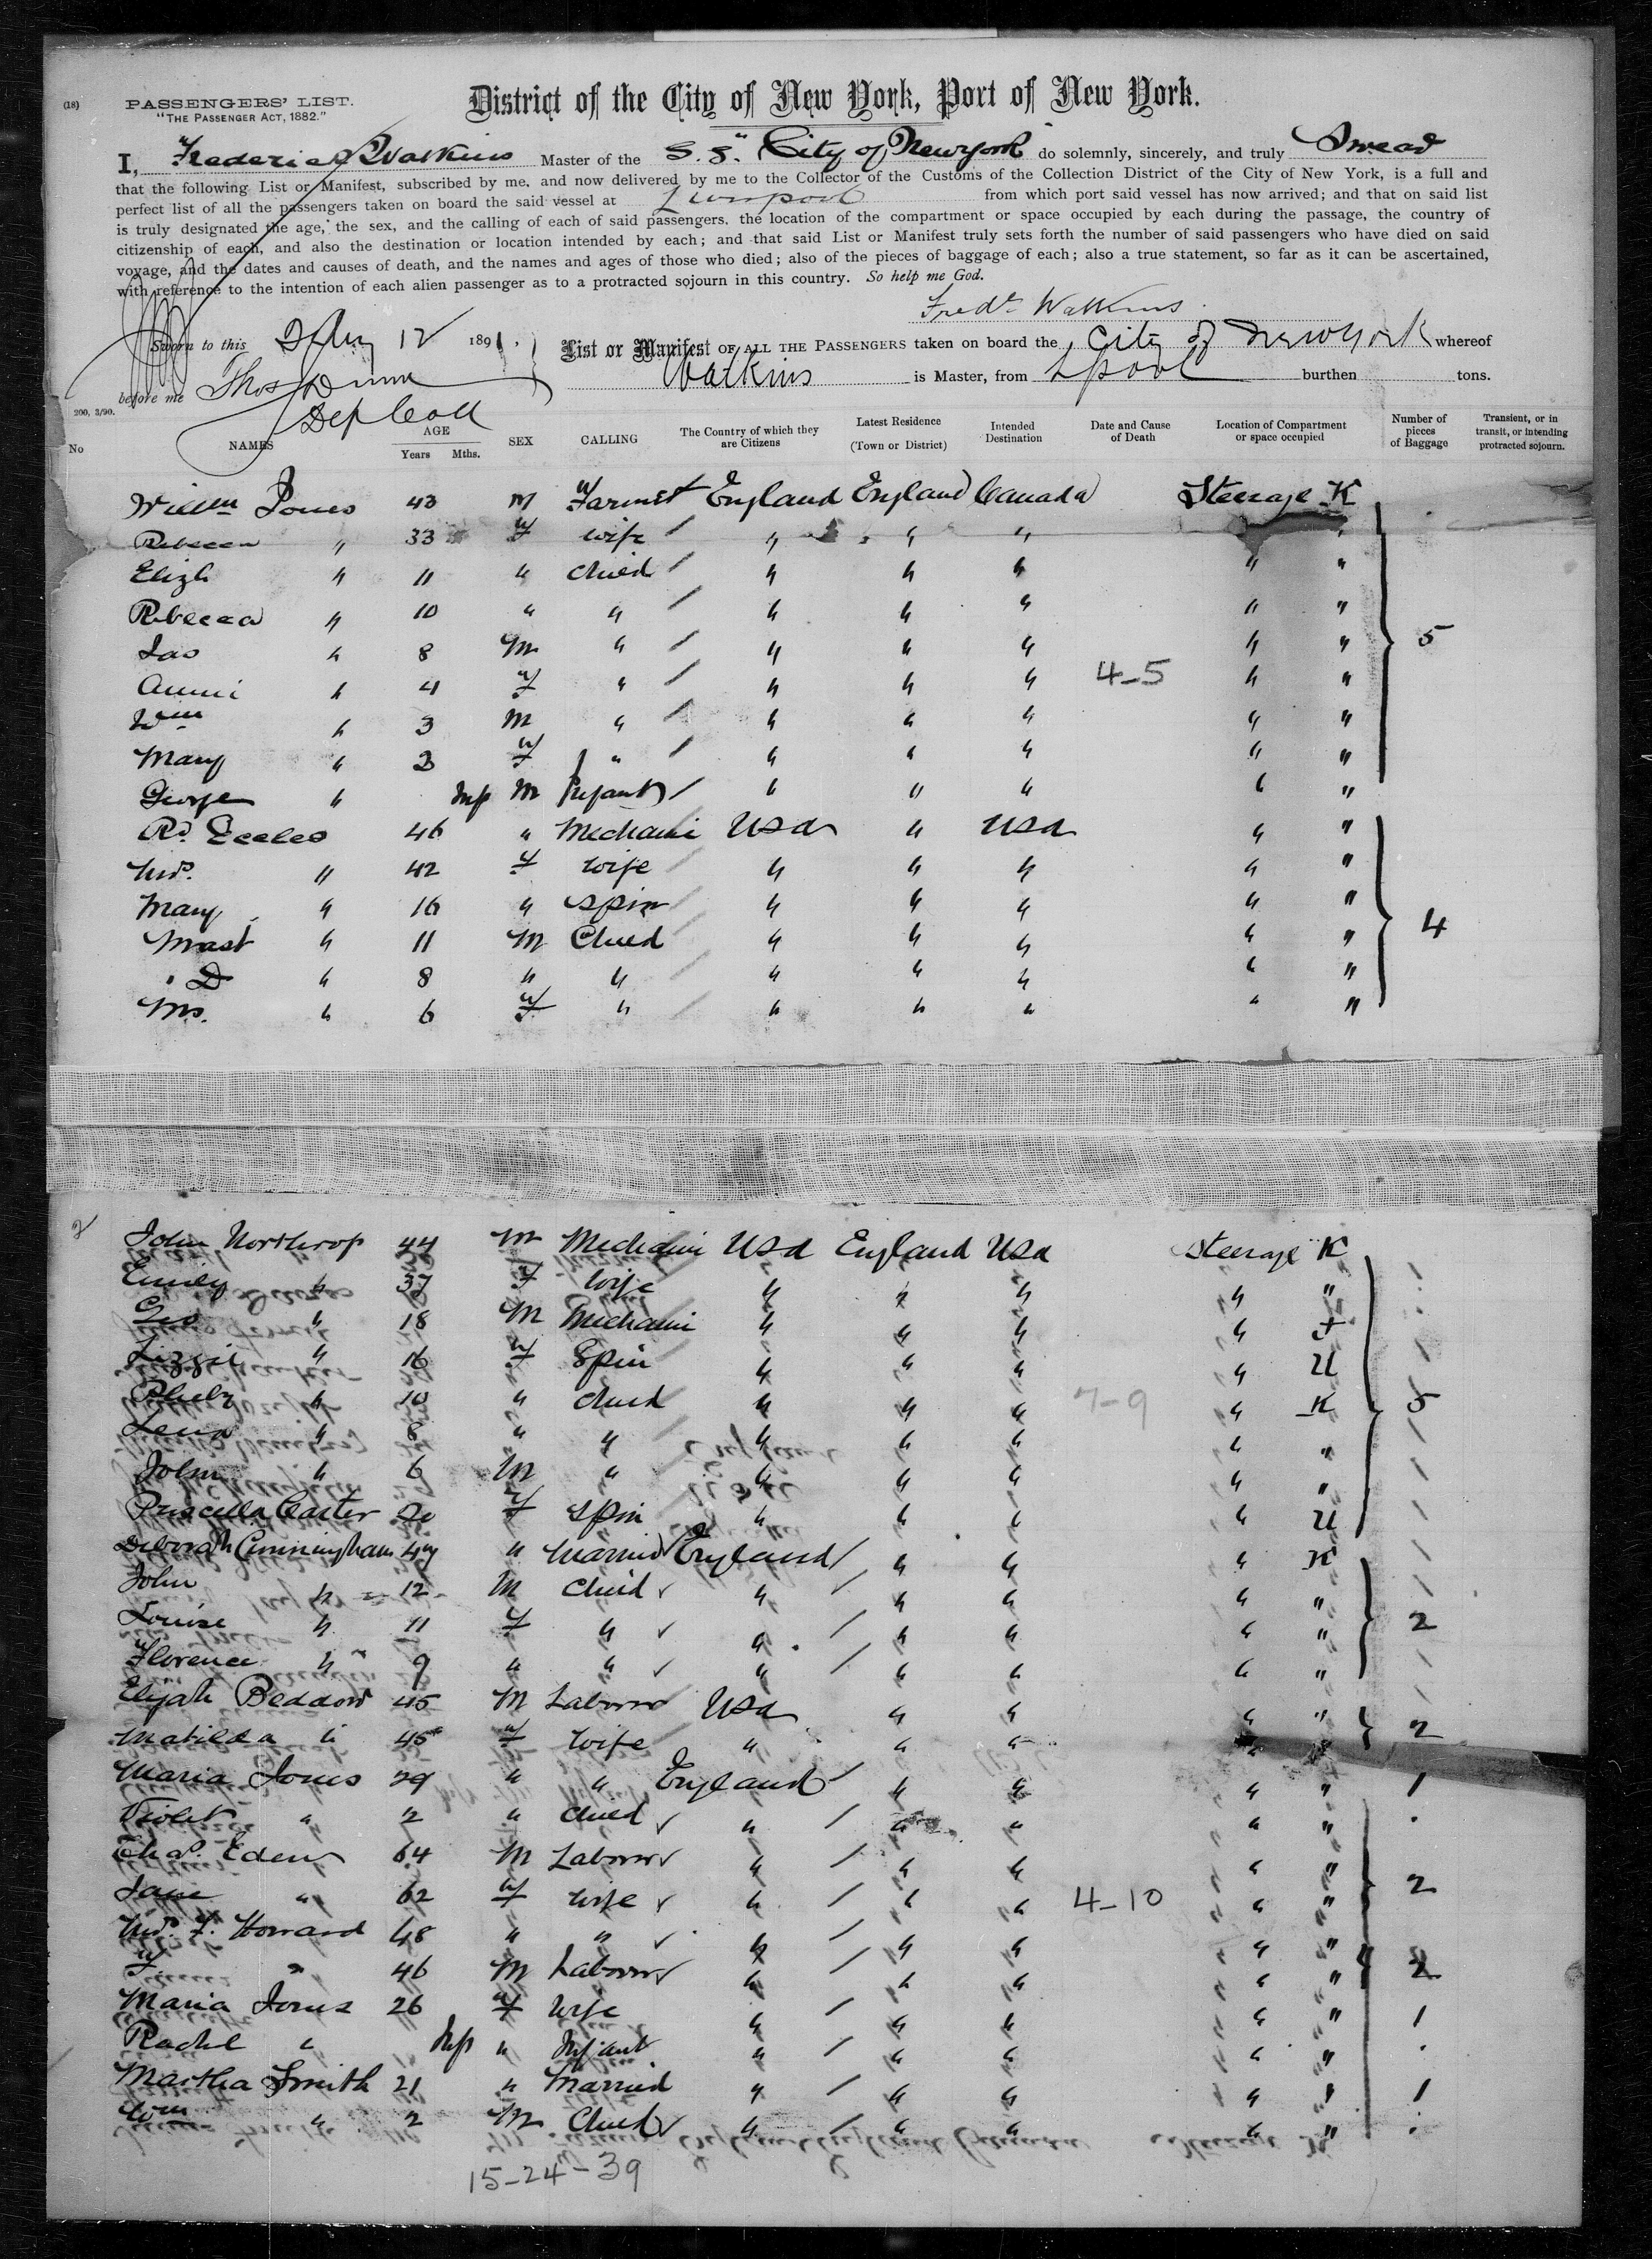 (18)
PASSENGERS' LIST.
"THE PASSENGER ACT, 1882."
District of the City of New York, Port of New York.
I, Frederic Watkins Master of the S.S. "City of Newyork" do solemnly, sincerely, and truly Swear
that the following List or Manifest, subscribed by me, and now delivered by me to the Collector of the Customs of the Collection District of the City of New York, is a full and
perfect list of all the passengers taken on board the said vessel at Liverpool from which port said vessel has now arrived; and that on said list
is truly designated the age, the sex, and the calling of each of said passengers. the location of the compartment or space occupied by each during the passage, the country of
citizenship of each, and also the destination or location intended by each; and that said List or Manifest truly sets forth the number of said passengers who have died on said
voyage, and the dates and causes of death, and the names and ages of those who died; also of the pieces of baggage of each; also a true statement, so far as it can be ascertained,
with reference to the intention of each alien passenger as to a protracted sojourn in this country. So help me God.
Fredk Watkins
Sworn to this 12 1891.
List or Manifest OF ALL THE PASSENGERS taken on board the City of New York whereof
Watkins is Master, from Lpool burthen tons.
before me Thos Dunn
Dep Coll
200, 3/90.
No NAMES AGE Years Mths. SEX CALLING The Country of which they are Citizens Latest Residence (Town or District) Intended Destination Date and Cause of Death Location of Compartment or space occupied Number of pieces of Baggage Transient, or in transit, or intending protracted sojourn.
Willm Jones 43 M Farmer England England Canada Steerage K
Rebecca " 33 F wife " " " " "
Elizh " 11 " Child " " " " "
Rebecca " 10 " " " " " " "
Jas " 8 M " " " " " " 5
Annie " 4 F " " " " 4-5 " "
Wm " 3 M " " " " " "
Mary " 2 F " " " " " "
George " Inf M Infant " " " " "
Rd Eccles 46 " Mechanic USA " USA " "
Mrs. " 42 F wife " " " " "
Mary " 16 " Spin " " " " "
Mast " 11 M Child " " " " " 4
" D " 8 " " " " " " "
Ms. " 6 F " " " " " "
2 John Northrop 44 M Mechanic USA England USA Steerage K
Emily " 37 F Wife " " " " "
Geo " 18 M Mechanic " " " "
Lizzie " 16 F Spin " " " " U
Pheby " 10 " Child " " " 7-9 " K 5
Lena " 8 " " " " " " "
John " 6 M " " " " " "
Priscilla Carter 20 F Spin " " " " U
Deborah Cunningham " Married England " " " K
John " 12 M Child " " " " "
Louise " 11 F " " " " " " 2
Florence " 9 " " " " " " "
Elijah Beddow 45 M Laborer USA " " " "
Matilda " 45 F Wife " " " " " 2
Maria Jones 29 " " England " " " " 1
Violet " 2 " Child " " " " "
Chas. Eden 64 M Laborer " " " " "
Jane " 62 F Wife " " " 4-10 " " 2
Mrs. F. Howard 48 " " " " " " "
F. " 46 M Laborer " " " " " 2
Maria Jones 26 F Wife " " " " " 1
Rachel " Inf " Infant " " " " "
Martha Smith 21 " Married " " " " " 1
Wm " 2 M Child " " " " "
15-24-39